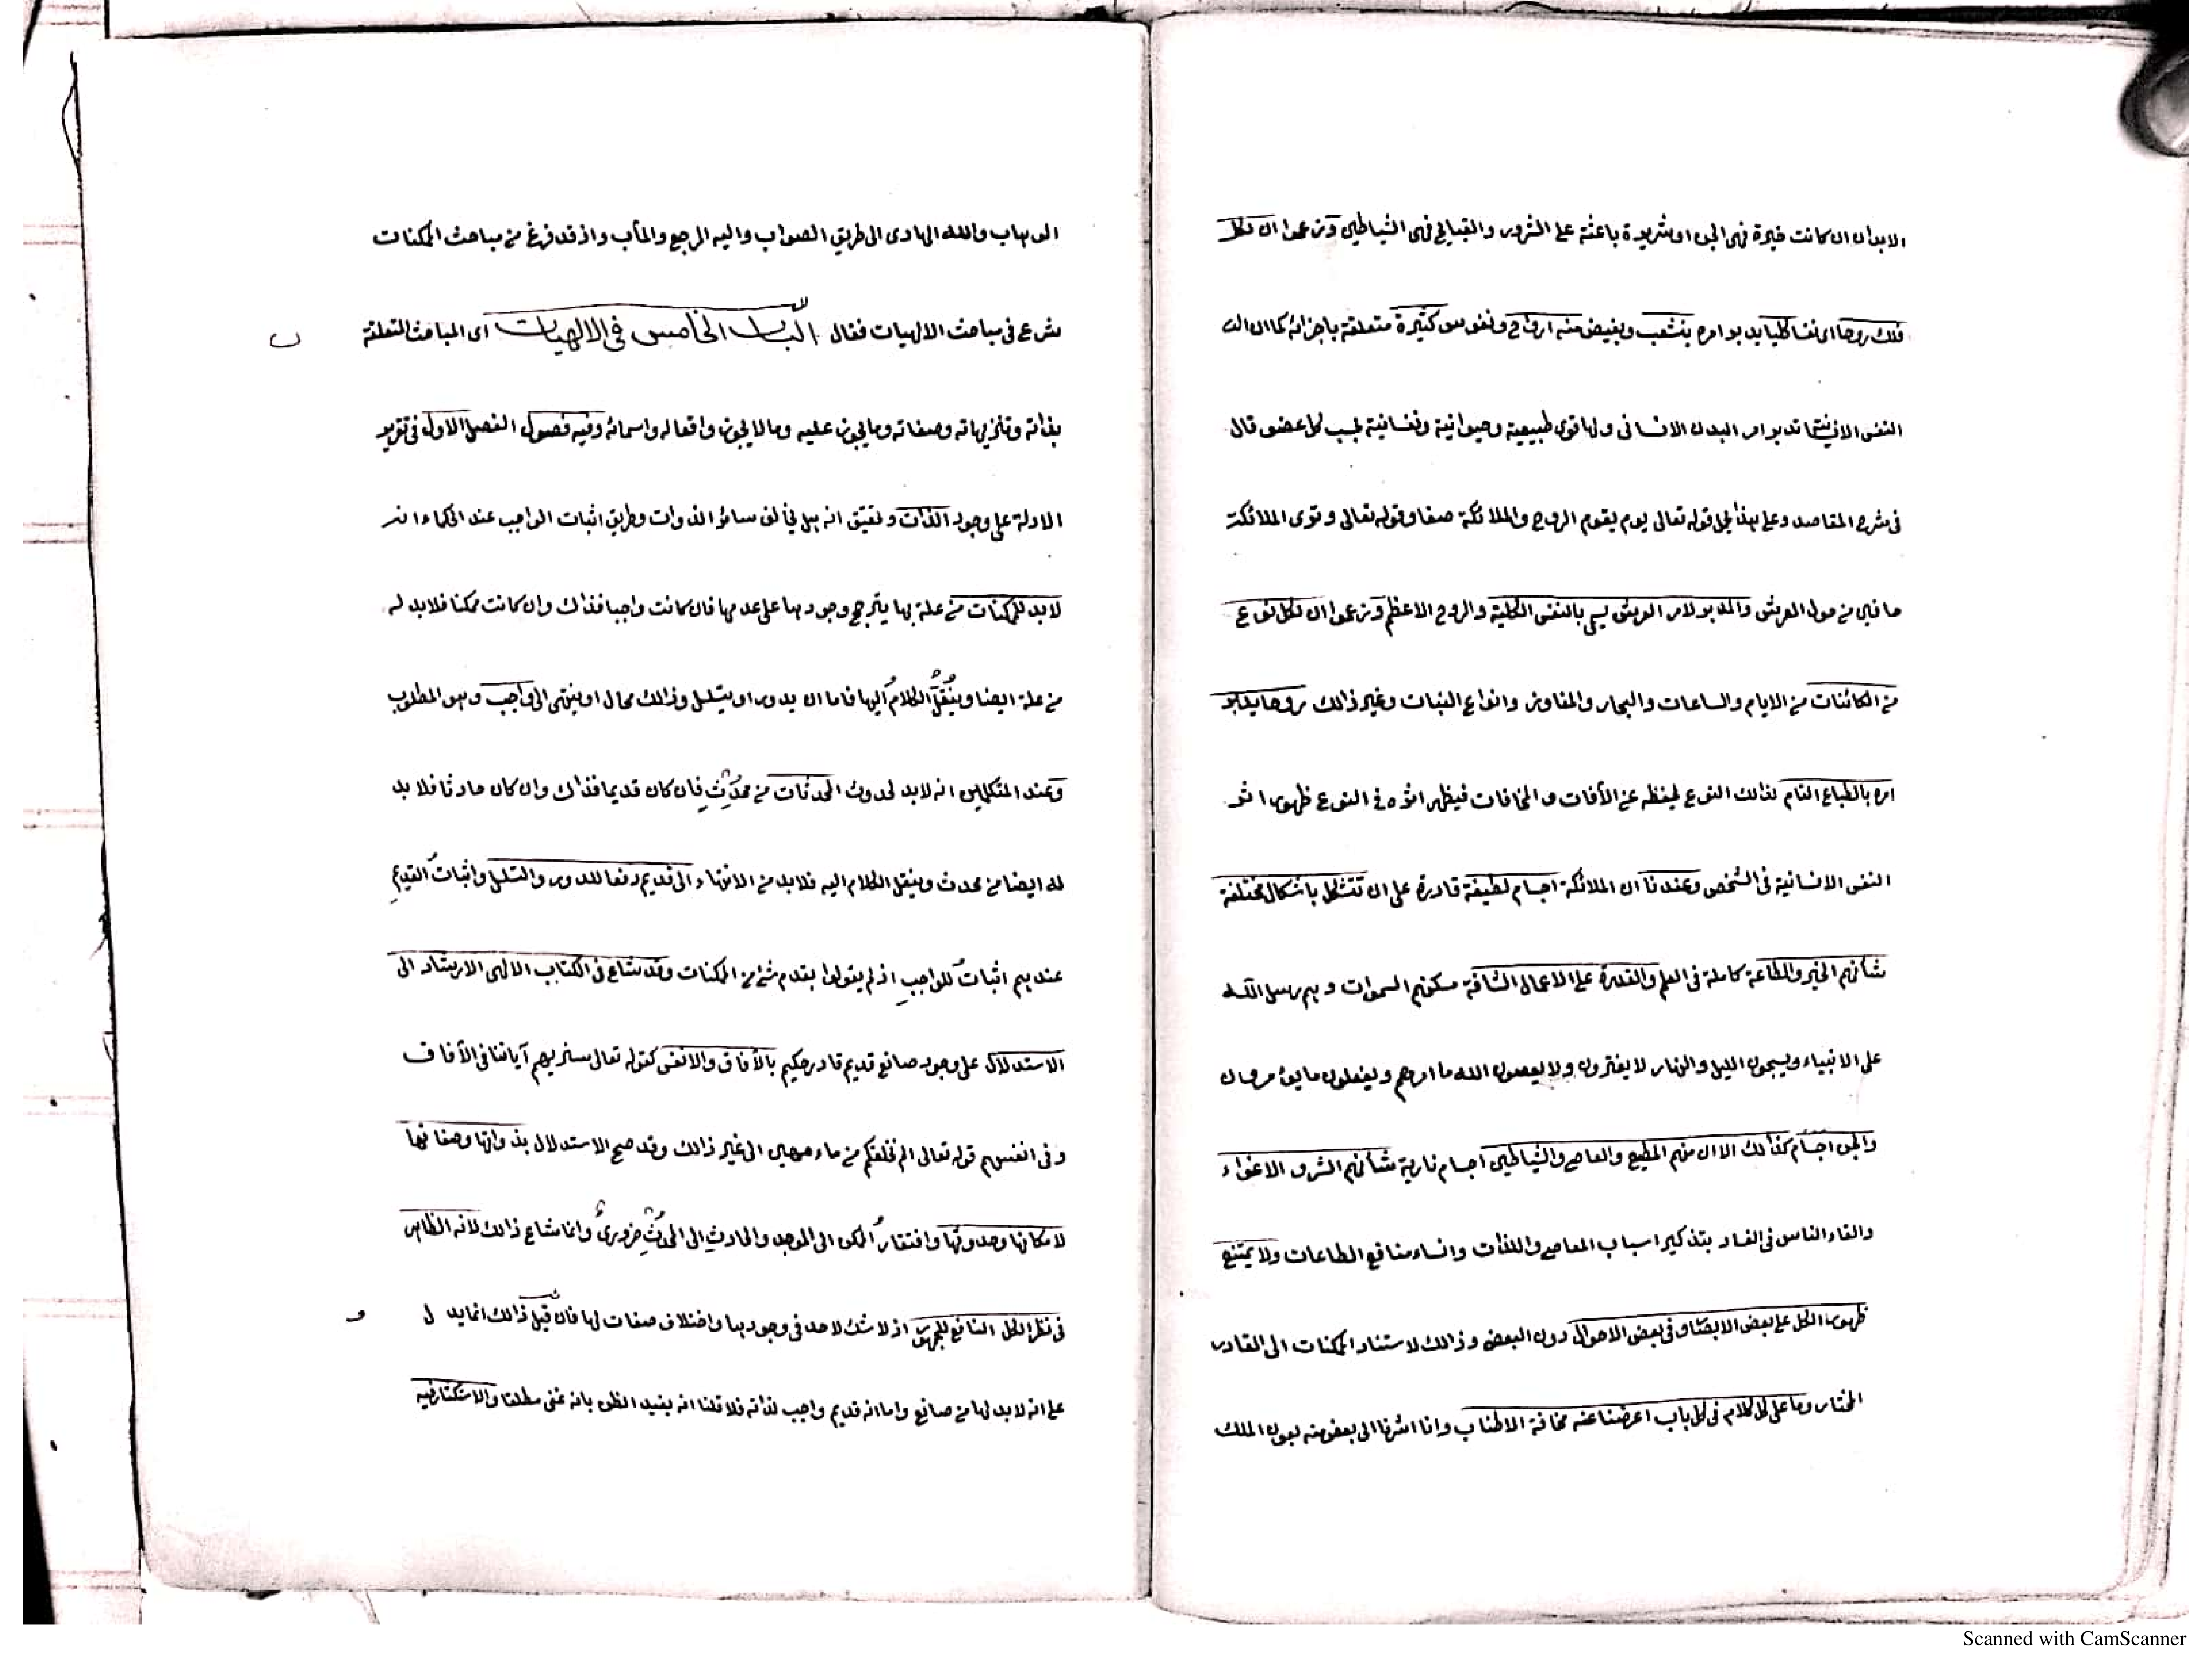 الابدان ان كانت خيرة فهى الجن او شريرة باعثة على الشرور والقبايح فهى الشياطين وزعموا ان لكل
فلك روحا اى نفسا كليا يدبر امره ينشعب ويفيض منه ارواح ونفوس كثيرة متعلقة باجزائه كما ان الن
النفس الانسانية تدبر امر البدن الانسانى ولها قوى طبيعية وحيوانية ونفسانية بحسب كل عضو قال
فى شرح المقاصد وعلى هذا يحمل قوله تعالى يوم يقوم الروح والملائكة صفا وقوله تعالى وترى الملائكة
حافين من حول العرش والمدبر لامر العرش يسمى بالنفس الكلية والروح الاعظم وزعموا ان لكل نوع
من الكائنات من الايام والساعات والبحار والمفاوز وانواع النبات وغير ذالك روحا يدبر
امره بالطباع التام لذالك النوع يحفظه عن الآفات والمخافات فيظهر اثره فى النوع ظهور اثر
النفس الانسانية فى الشخص وعندنا ان الملائكة اجسام لطيفة قادرة على ان تتشكل باشكال مختلفة
شأنهم الخير والطاعة كاملة فى العلم والقدرة على الاعمال الشاقة مسكنهم السموات وهم رسل الله
على الانبياء ويسبحون الليل والنهار لا يفترون ولا يعصون الله ما امرهم ويفعلون ما يؤمرون
والجن اجسام كذالك الا ان منهم المطيع والعاصى والشياطين اجسام نارية شأنهم الشر والاغواء
والقاء الناس فى الفساد بتذكير اسباب المعاصى واللذات وانساء منافع الطاعات ولا يمتنع
ظهور الكل على بعض الابصار وفى بعض الاحوال دون البعض وذالك لاستناد الممكنات الى القادر
المختار وما على كل كلام فى كل باب اعرضنا عنه مخافة الاطناب وانا اشرنا الى بعض منه بعون الملك
الوهاب والله الهادى الى طريق الصواب واليه المرجع والمأب واذ قد فرغ من مباحث الممكنات
شرع فى مباحث الالهيات فقال الباب الخامس فى الالهيات اى المباحث المتعلقة
بذاته وتنزيهاته وصفاته وما يجوز عليه وما لا يجوز وافعاله واسمائه وفيه فصول الفصل الاول فى تقرير
الادلة على وجود الذات وتحقيق انه هل يخالف سائر الذوات وطريق اثبات الواجب عند الحكماء انه
لابد للممكنات من علة بها يترجح وجودها على عدمها فان كانت واجبا فذاك وان كانت ممكنا فلابد له
من علة ايضا وينقل الكلام اليها فاما ان يدور او يتسلسل وذالك محال او ينتهى الى واجب وهو المطلوب
وعند المتكلمين انه لابد لحدوث المحدثات من محدث فان كان قديما فذاك وان كان حادثا فلابد
له ايضا من محدث وينقل الكلام اليه فلابد من الانتهاء الى قديم دفعا للدور والتسلسل واثبات القديم
عندهم اثبات للواجب اذ لم يقولوا بقدم شئ من الممكنات وقد شاع فى الكتاب الالهى الارشاد الى
الاستدلال على وجود صانع قديم قادر حكيم بالآفاق والانفس كقوله تعالى سنريهم آياتنا فى الآفاق
وفى انفسهم قوله تعالى الم نخلقكم من ماء مهين الى غير ذالك وقد صح الاستدلال بذواتها وصفاتها
لامكانها وحدوثها وافتقار الممكن الى الموجد والحادث الى المحدث ضرورى وانما شاع ذالك لانه الظاهر
فى نظر الكل النافع للجمهور اذ لا شك لاحد فى وجودها واختلاف صفات لها فان قيل ذالك انما يدل
على انه لابد لها من صانع واما انه قديم واجب لذاته فلا قلنا انه يفيد الظن بانه غنى مطلقا والاستكثار فيه